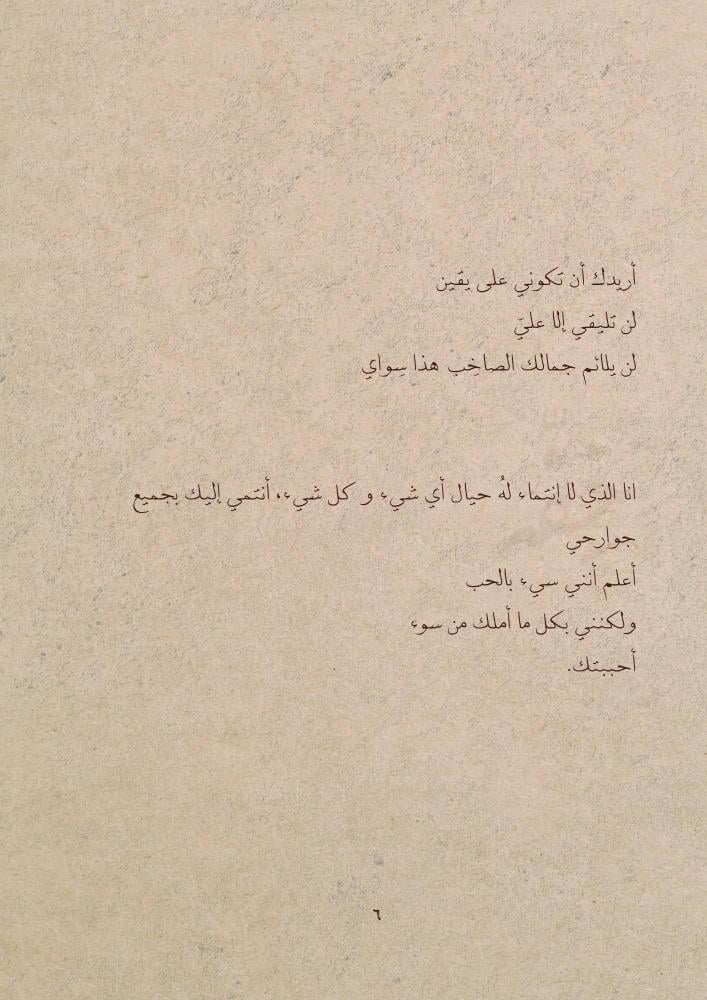 أريدك أن تكوني على يقين
لن تليقي إلا عليّ
لن يلائم جمالك الصاخِب هذا سِواي
انا الذي لا إنتماء لهُ حيال أي شيء و كل شيء، أنتمي إليك بجميع
جوارحي
أعلم أنني سيء بالحب
ولكنني بكل ما أملك من سوء
أحببتك.
٦